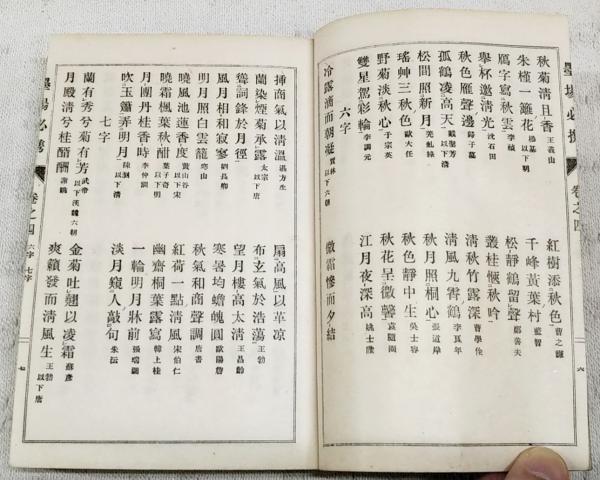 墨場必携
卷之四
六
秋菊淸且香 王義山
朱槿一籬花 楊基 以下明
鴈字寫秋雲 李楨
擧杯邀淸光 沈石田
秋色雁聲邊 歸子慕
孤鶴凌高天 戴聚芳 以下清
松間照新月
瑤艸三秋色 歐大任
野菊淡秋心 于宗英
雙星駕彩輪 李調元
六字
冷露滴而朝凝 以下六朝
紅樹添秋色 曹之謙
千峰黃葉村 藍智
松靜鶴留聲 鄭善夫
叢桂愜秋吟
淸秋竹露深 曹學佺
淸風九霄鶴
秋月照桐心 張道岸
秋色靜中生 吳士容
秋花呈微馨 袁隨園
江月夜深高 姚士陛
微霜慘而夕結
揷商氣以淸溫 湛方生
蘭染煙菊承露 太宗 以下唐
聳詞鋒於月徑
風月相和寂寥 劉長卿
明月照白雲籠 寒山
曉風池蓮香度 黃山谷 以下宋
曉霜楓葉秋酣 葉子奇 以下明
月團丹桂香時 李仲訓
吹玉簫弄明月 陳劉 以下清
七字
蘭有秀兮菊有芳 武帝 以下漢魏六朝
月殿淸兮桂醑酬 謝眺
墨場必携
卷之四
六字 七字
七
扇高風以革凉
布玄氣於浩蕩 王勃
望月樓高太淸 王昌齡
寒暑均蟾魄圓 歐陽詹
秋氣和商聲調 唐書
紅荷一點淸風 宋伯仁
幽齋桐葉露寫 韓上桂
一輪明月牀前 張瑞圖
淡月窺人敲句 朱沄
金菊吐翹以凌霜 蘇彥
爽籟發而淸風生 王勃 以下唐